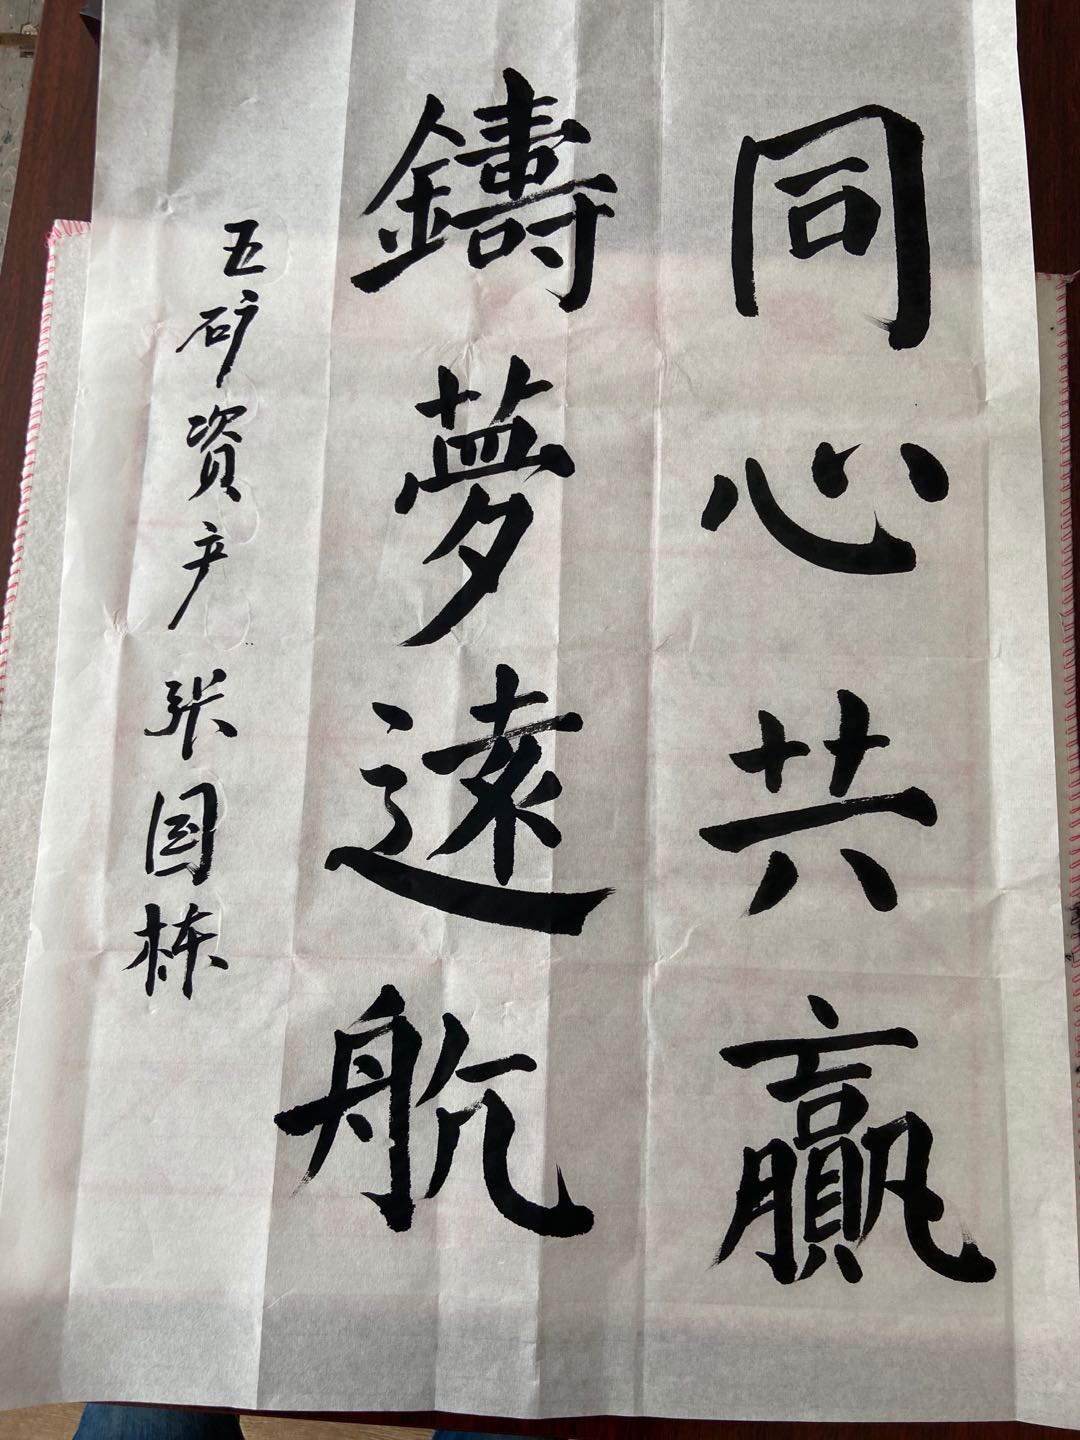 同心共贏
鑄夢遠航
五矿資产 张国栋